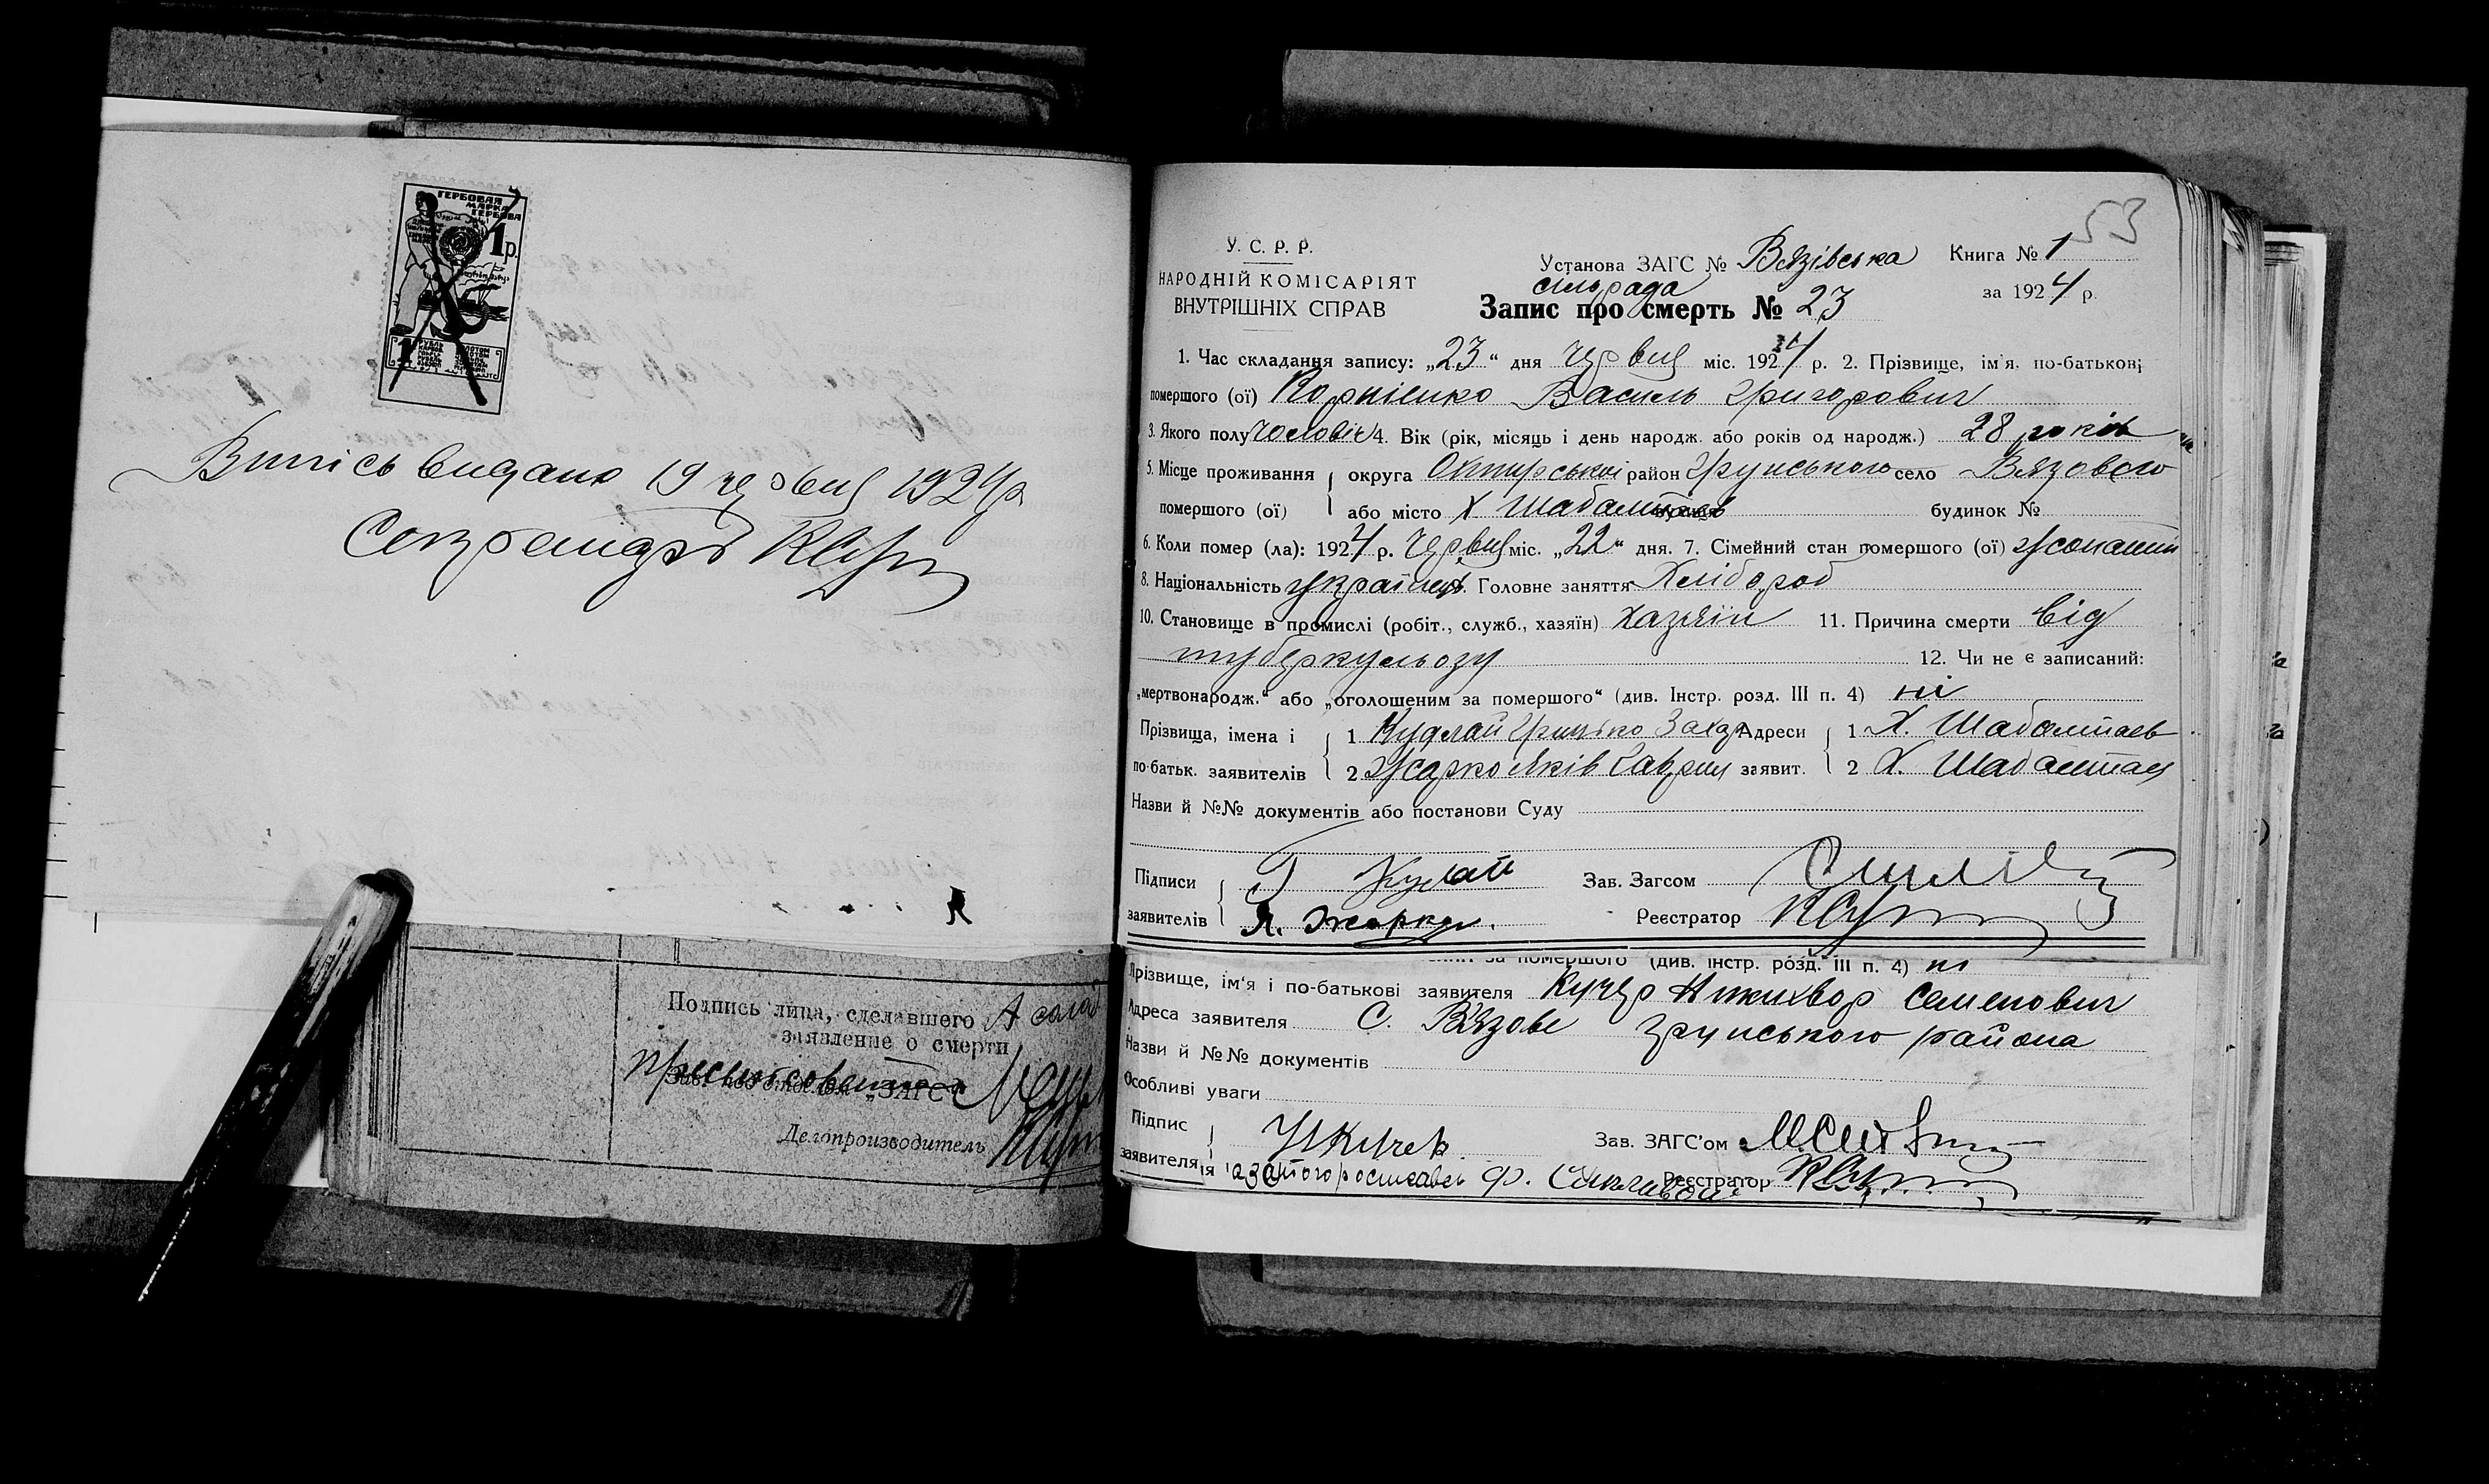 ГЕРБОВАЯ
МАРКА
ГЕРБОВА
1р.
1
Випісь видано 19 червця 1924 р
Секретарь
Подпись лица, сделавшего
заявление о смерти
„ЗАГС“
Делопроизводитель
53
У. С. Р. Р.
НАРОДНІЙ КОМІСАРІЯТ
ВНУТРІШНІХ СПРАВ
Установа ЗАГС № Вязівська
сільрада
Книга № 1
за 1924 р.
Запис про смерть № 23
1. Час складання запису: „23“ дня червця міс. 1924 р. 2. Прізвище, ім'я, по-батькові
помершого (ої) Корнієнко Василь Григорович
3. Якого полу чоловіч 4. Вік (рік, місяць і день народж. або років од народж.) 28 років
5. Місце проживання округа Охтирської район Грунського село Вязового
помершого (ої) або місто Х Шабалтаєв будинок №
6. Коли помер (ла): 1924 р. червця міс. „22“ дня. 7. Сімейний стан помершого (ої) жонатий
8. Національність українець. Головне заняття Хлібороб
10. Становище в промислі (робіт., служб., хазяїн) хазяїн 11. Причина смерти від
туберкульозу 12. Чи не є записаний:
„мертвонародж.“ або „оголошеним за помершого“ (див. Інстр. розд. III п. 4) ні
Прізвища, імена і 1 Кудлай Грицько Захар Адреси 1 Х. Шабалтаєв
по-батьк. заявителів 2 Жарко Яків Гаврил заявит. 2 Х. Шабалтаєв
Назви й №№ документів або постанови Суду
Підписи Г Кудлай Зав. Загсом
заявителів Я. Жарко. Реєстратор
за помершого (див. Інстр. розд. III п. 4) ні
Прізвище, ім'я і по-батькові заявителя Кучер Никихвор Семенович
Адреса заявителя С. Вязове Грунського района
Назви й №№ документів
Особливі уваги
Підпис Н Кучер Зав. ЗАГС'ом
заявителя Реєстратор